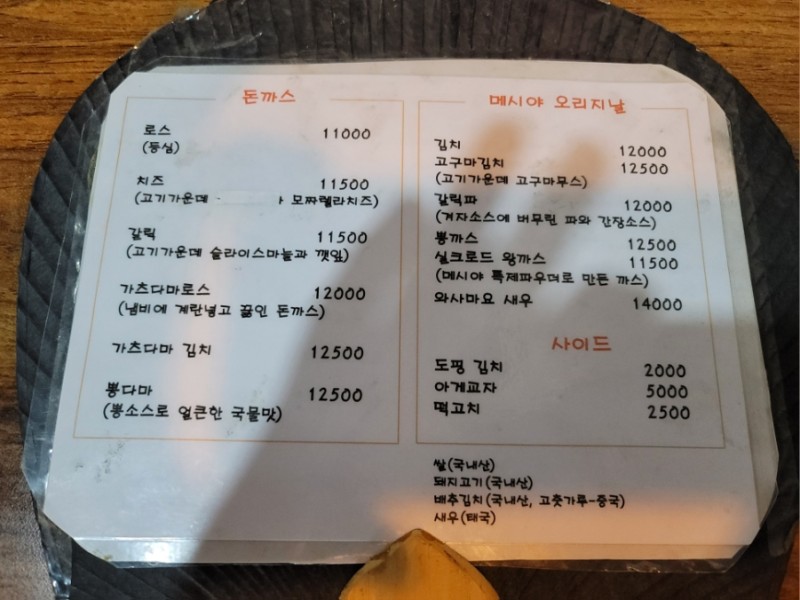 돈까스
로스 11000
(등심)
치즈 11500
(고기가운데 모짜렐라치즈)
갈릭 11500
(고기가운데 슬라이스마늘과 깻잎)
가츠다마로스 12000
(냄비에 계란넣고 끓인 돈까스)
가츠다마 김치 12500
뽕다마 12500
(뽕소스로 얼큰한 국물맛)
메시야 오리지날
김치 12000
고구마김치 12500
(고기가운데 고구마무스)
갈릭파 12000
(겨자소스에 버무린 파와 간장소스)
뽕까스 12500
실크로드 왕까스 11500
(메시야 특제파우더로 만든 까스)
와사마요 새우 14000
사이드
토핑 김치 2000
아게교자 5000
떡고치 2500
쌀(국내산)
돼지고기(국내산)
배추김치(국내산, 고춧가루-중국)
새우(태국)